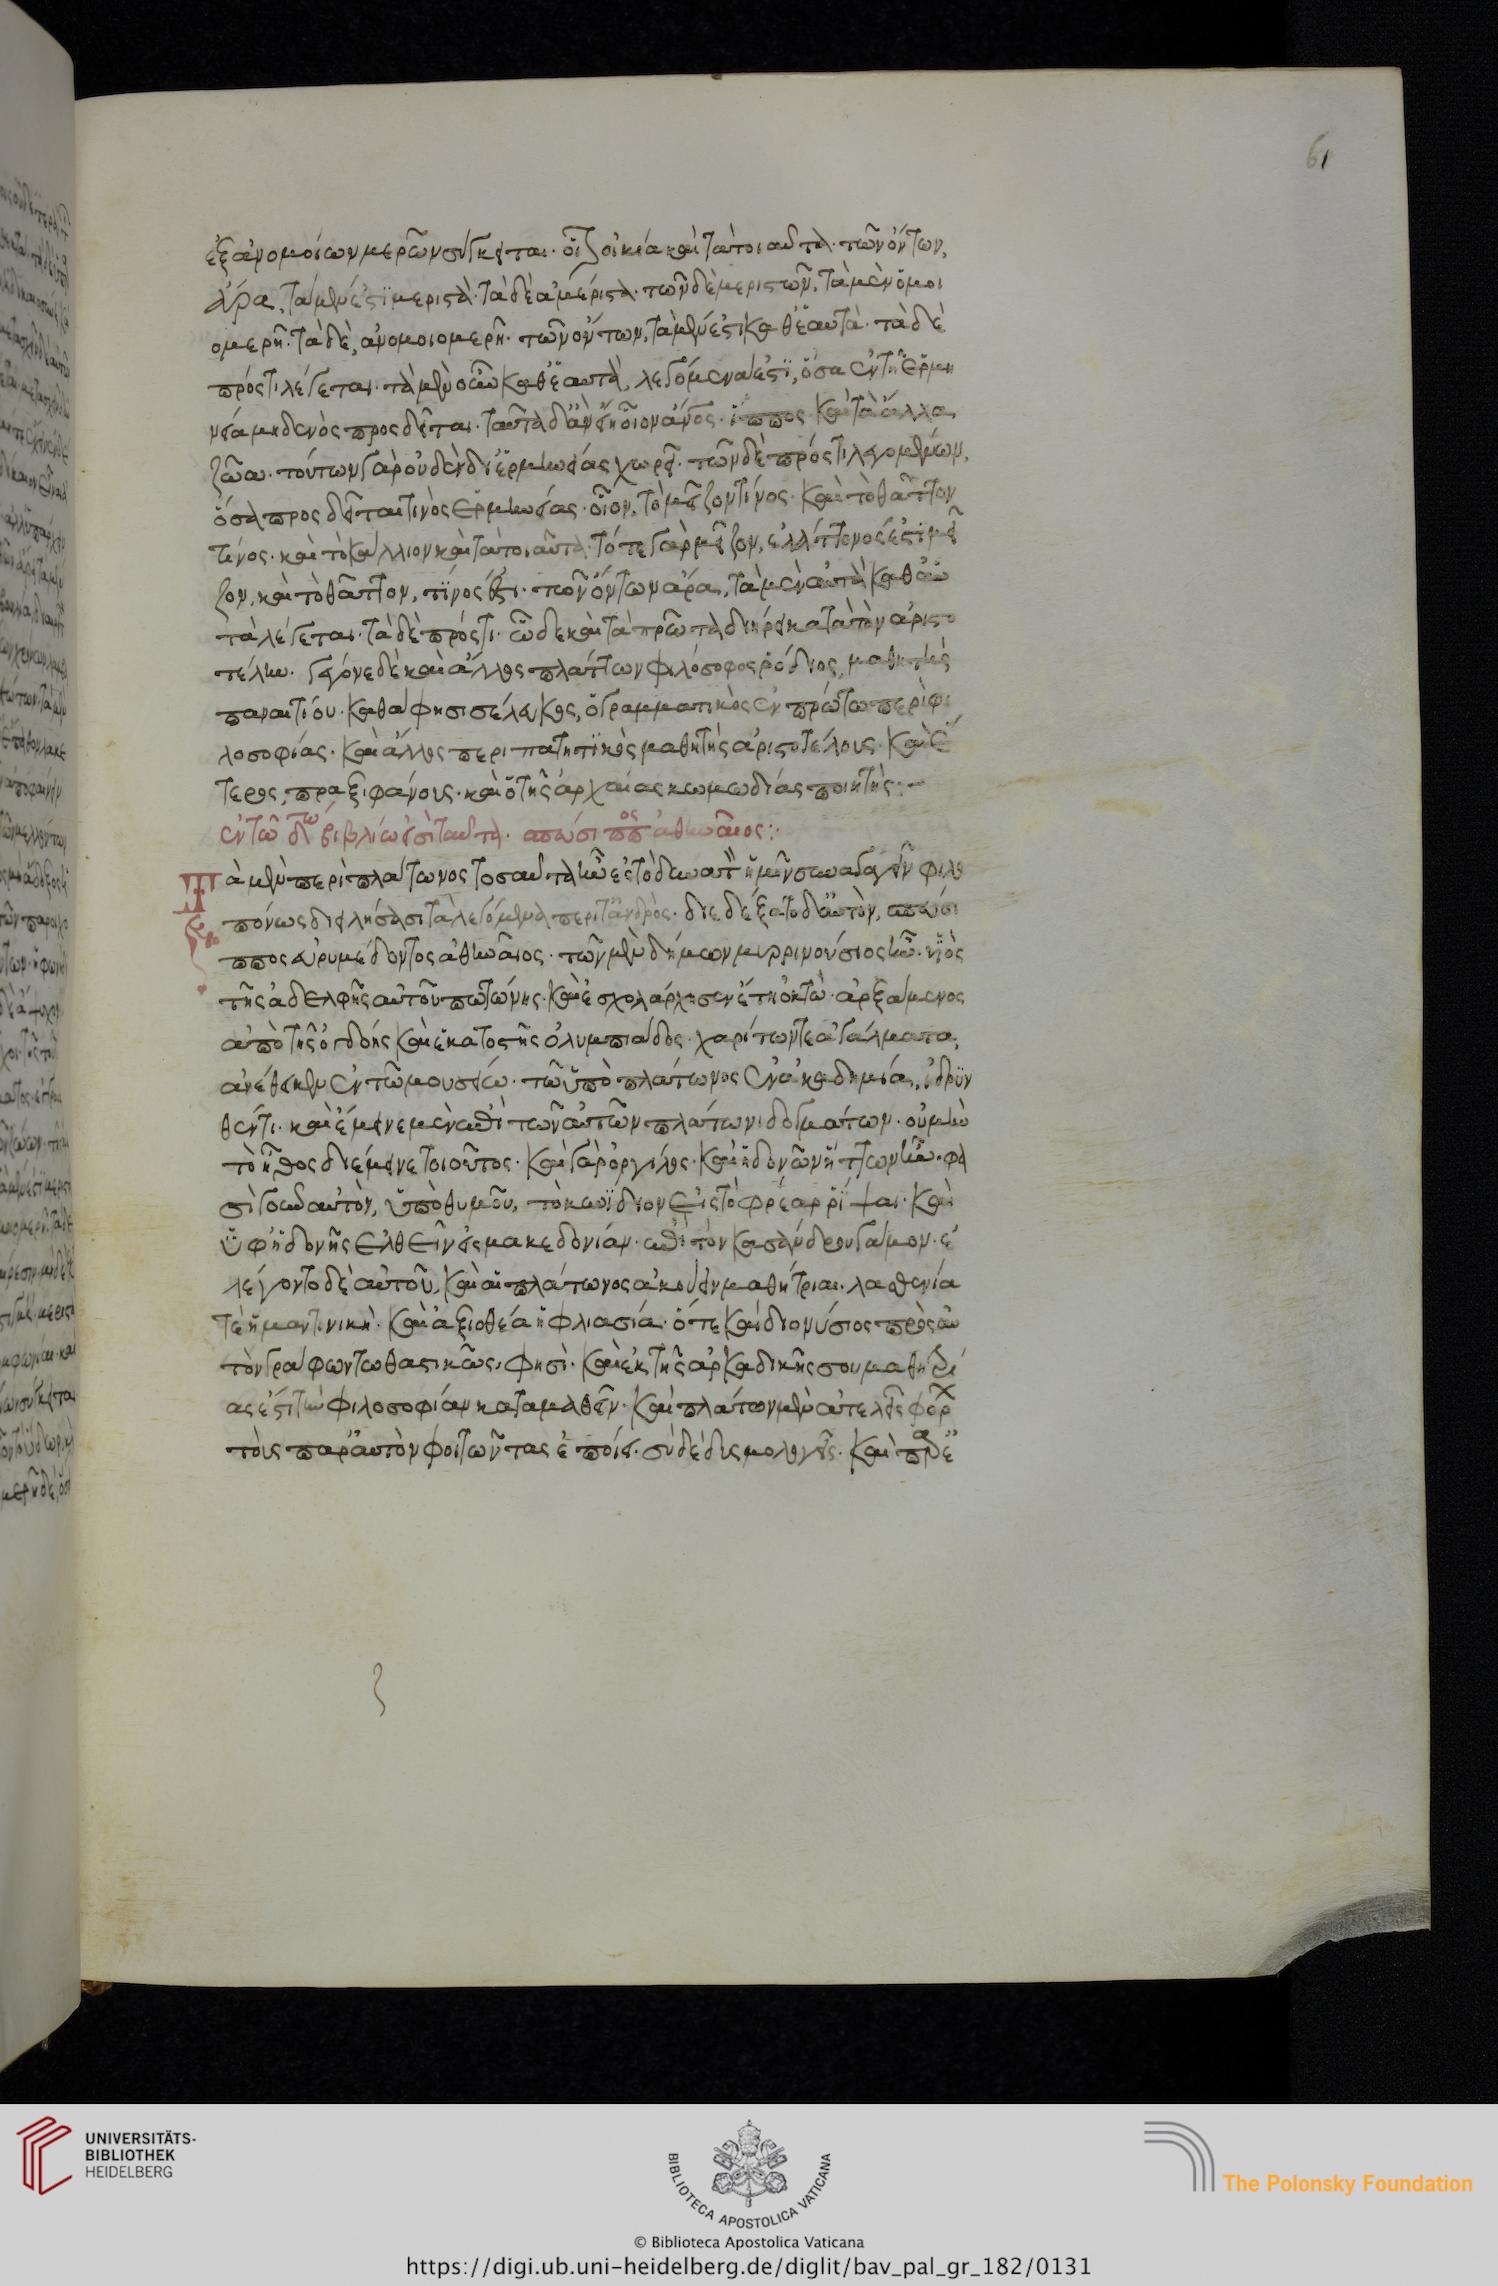 61
ἐξ ἀνομοίων μερῶν σύγκειται· οἷον οἰκία καὶ τὰ τοιαῦτα· τῶν ὄντων,
ἄρα, τὰ μέν ἐστι μεριστὰ· τὰ δὲ ἀμέριστα· τῶν δὲ μεριστῶν, τὰ μὲν ὁμοι
ομερῆ· τὰ δὲ, ἀνομοιομερῆ· τῶν ὄντων, τὰ μέν ἐστι καθ' ἑαυτὰ· τὰ δὲ
πρός τι λέγεται· τὰ μὲν οὖν καθ' ἑαυτὰ, λεγόμενα ἐστὶ, ὅσα ἐν τῇ ἑρμη
νείᾳ μηδενὸς προσδεῖται· ταῦτα δ' ἂν εἴη οἷον ἄνος· ἵππος καὶ τὰ ἄλλα
ζῶα· τούτων γὰρ οὐδὲν δι' ἑρμηνείας χωρεῖ· τῶν δὲ πρός τι λεγομένων,
ὅσα προσδεῖται τινὸς ἑρμηνείας· οἷον, τὸ μεῖζον τίνος· καὶ τὸ θᾶττον
τίνος· καὶ τὸ κάλλιον καὶ τὰ τοιαῦτα· τό τε γὰρ μεῖζον, ἐλάττονός ἐστι μεῖ
ζον, καὶ τὸ θᾶττον, τινός ἐστι· τῶν ὄντων ἄρα, τὰ μὲν αὐτὰ καθ' αὑ
τὰ λέγεται· τὰ δὲ πρός τι· ὧδε καὶ τὰ πρῶτα διῄρει κατὰ τὸν ἀριστο
τέλην· γέγονε δὲ καὶ ἄλλος πλάτων φιλόσοφος ῥόδιος, μαθητὴς
παναιτίου· καθά φησι σέλευκος, ὁ γραμματικὸς ἐν πρώτω περὶ φι
λοσοφίας· καὶ ἄλλος περιπατητικὸς μαθητὴς ἀριστοτέλους· καὶ ἕ
τερος, πραξιφάνους· καὶ ὁ τῆς ἀρχαίας κωμωδίας ποιητής:
ἐν τῶ δω βιβλίω ἐστὶ ταῦτα· σπεύσιππος ἀθηναῖος:
Τὰ μὲν περὶ πλάτωνος τοσαῦτα ἦν ἐς τὸ δυνατὸν ἡμῖν συναγαγεῖν φιλο
πόνως διειλήσασι τὰ λεγόμενα περὶ τἀνδρός· διεδέξατο δ' αὐτὸν, σπεύσι
ππος εὐρυμέδοντος ἀθηναῖος· τῶν μὲν δήμων μυρρινούσιος ἦν· υἱὸς
τῆς ἀδελφῆς αὐτοῦ πωτώνης· καὶ ἐσχολάρχησεν ἔτη ὀκτὼ· ἀρξάμενος
ἀπὸ τῆς ὀγδόης καὶ ἑκατοστῆς ὀλυμπιάδος· χαρίτων τε ἀγάλματα,
ἀνέθηκεν ἐν τῶ μουσείω· τῶ ὑπὸ πλάτωνος ἐν ἀκαδημία, ἱδρυν
θέντι· καὶ ἔμεινε μὲν ἐπὶ τῶν αὐτῶν πλάτωνι δογμάτων· οὐ μὴν
τὸ ἦθος διέμεινε τοιοῦτος· καὶ γὰρ ὀργίλος· καὶ ἡδονῶν ἥττων ἦν· φα
σὶ γοῦν αὐτὸν, ὑπὸ θυμοῦ, τὸ κυνίδιον εἰς τὸ φρέαρ ῥίψαι· καὶ
ὑφ' ἡδονῆς ἐλθεῖν ἐς μακεδονίαν· ἐπὶ τὸν κασάνδρου γάμον· ἐ
λέγοντο δὲ αὐτοῦ, καὶ αἱ πλάτωνος ἀκούειν μαθήτριαι· λασθενία
τε ἡ μαντινικὴ· καὶ ἀξιοθέα ἡ φλιασία· ὅτε καὶ διονύσιος πρὸς αὐ
τὸν γράφων τωθαστικῶς, φησὶ· καὶ ἐκ τῆς ἀρκαδικῆς σου μαθητρί
ας ἔστι τὴν φιλοσοφίαν καταμαθεῖν· καὶ πλάτων μὲν ἀτελεῖς φόρων
τοὺς παρ' αὐτὸν φοιτῶντας ἐποίει· σὺ δὲ δασμολογεῖς· καὶ παρ' ἑ
UNIVERSITÄTS-
BIBLIOTHEK
HEIDELBERG
BIBLIOTECA APOSTOLICA VATICANA
The Polonsky Foundation
© Biblioteca Apostolica Vaticana
https://digi.ub.uni-heidelberg.de/diglit/bav_pal_gr_182/0131